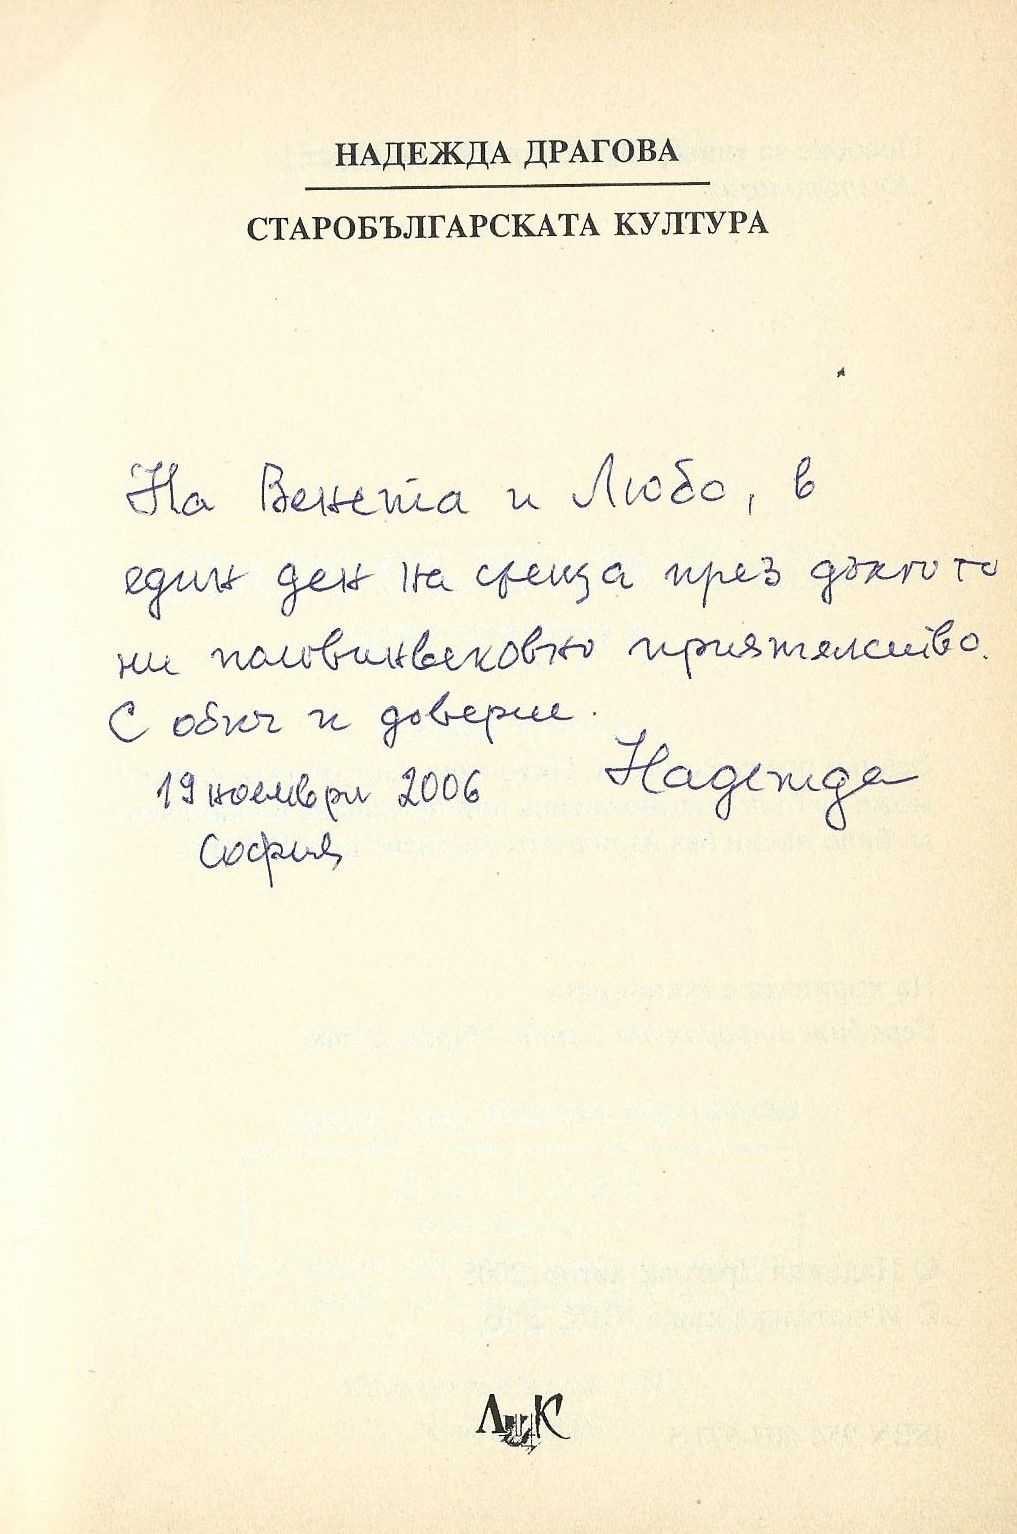 НАДЕЖДА ДРАГОВА
СТАРОБЪЛГАРСКАТА КУЛТУРА
На Венета и Любо, в
един ден на среща през дългото
ни половинвековно приятелство.
С обич и доверие.
Надежда
19 ноември 2006
София
ЛиК